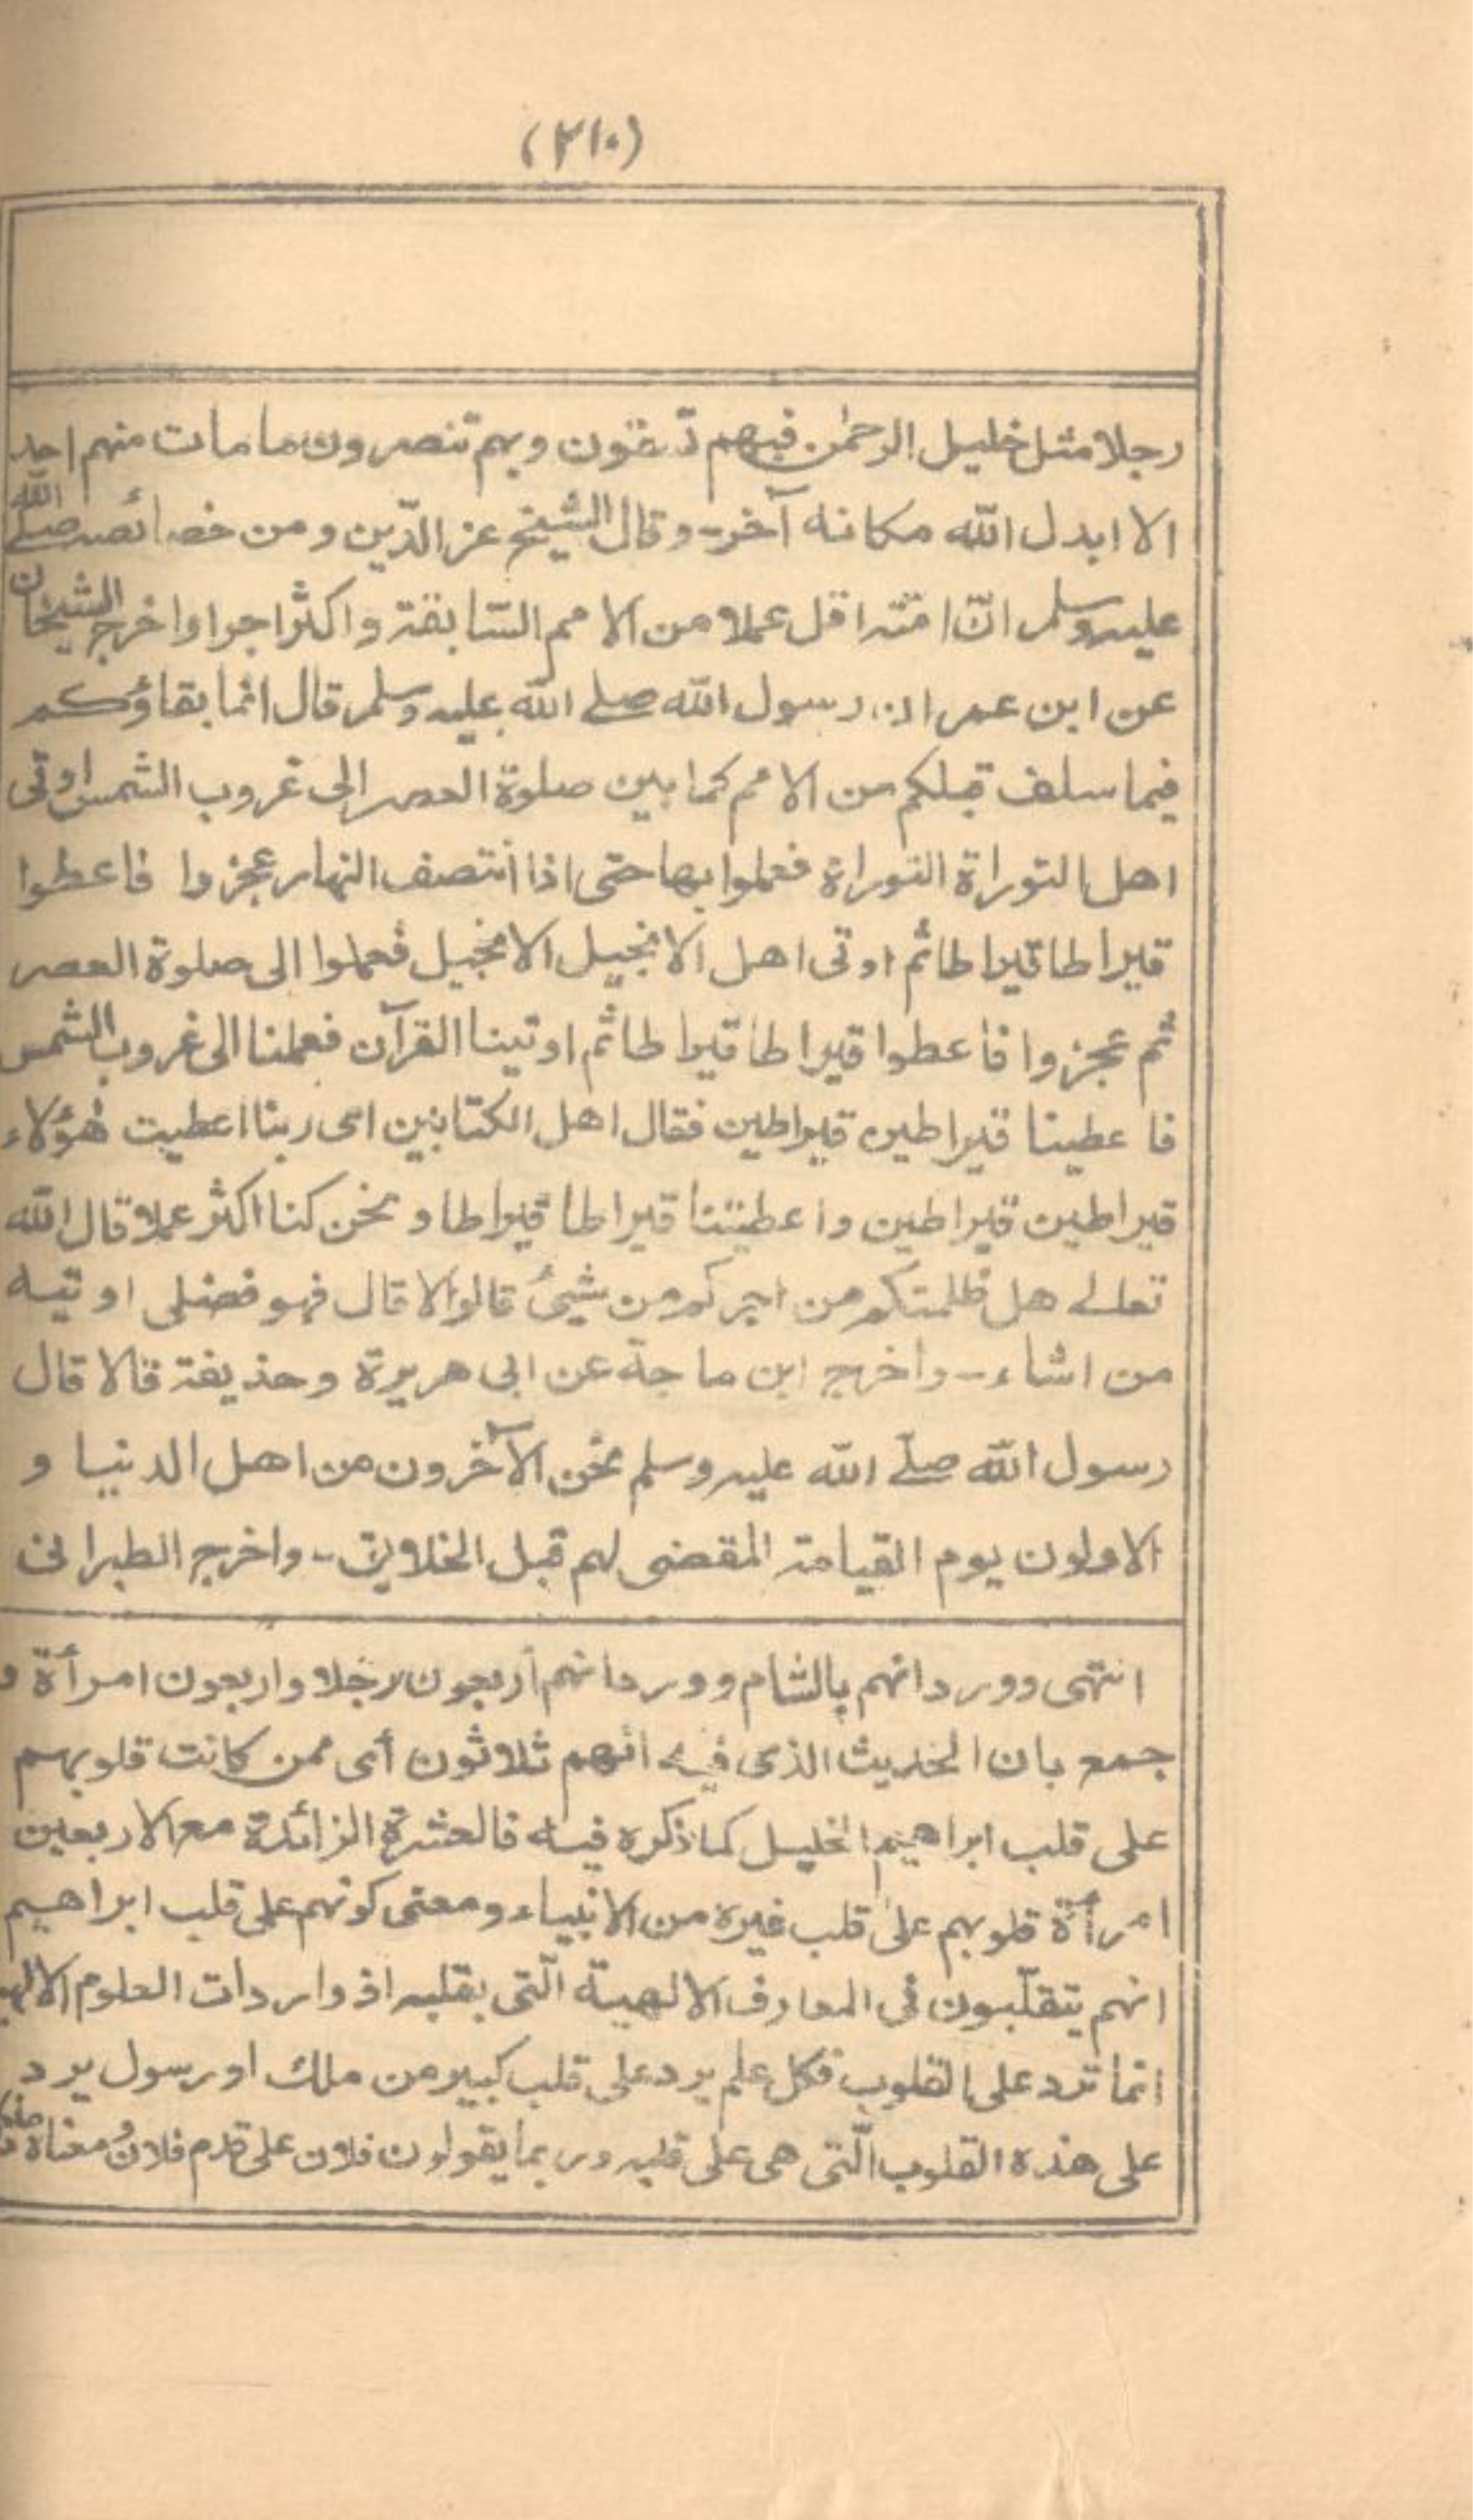 (٢١٠)
رجلا مثل خليل الرحمٰن فبهم تسقون وبهم تنصرون ما مات منهم احد
الا ابدل الله مكانه آخر- وقال الشيخ عز الدّين ومن خصائصه صلے الله
عليه وسلم انّ امّته اقل عملا من الامم السّابقة واكثر اجرا واخرج الشيخان
عن ابن عمر ان رسول الله صلے الله عليه وسلم قال انما بقاؤكم
فيما سلف قبلكم من الامم كما بين صلوة العصر الى غروب الشمس اوتى
اهل التوراة التوراة فعملوا بها حتى اذا انتصف النهار عجزوا فاعطوا
قيراطا قيراطا ثم اوتى اهل الانجيل الانجيل فعملوا الى صلوة العصر
ثم عجزوا فاعطوا قيراطا قيراطا ثم اوتينا القرآن فعملنا الى غروب الشمس
فاعطينا قيراطين قيراطين فقال اهل الكتابين اى ربنا اعطيت هٰؤلاء
قيراطين قيراطين واعطيتنا قيراطا قيراطا ونحن كنا اكثر عملا قال الله
تعالے هل ظلمتكم من اجركم من شيئ قالوا لا قال فهو فضلى اوتيه
من اشاء- واخرج ابن ماجة عن ابى هريرة وحذيفة قالا قال
رسول الله صلّے الله عليه وسلم نحن الآخرون من اهل الدنيا و
الاولون يوم القيامة المقضى لهم قبل الخلايق- واخرج الطبرانى
انتهى وورد انهم بالشام وورد انهم أربعون رجلا واربعون امرأة و
جمع بان الحديث الذى فيه انهم ثلاثون أى ممن كانت قلوبهم
على قلب ابراهيم الخليل كما ذكره فيه فالعشرة الزائدة مع الاربعين
امرأة قلوبهم على قلب غيره من الانبياء ومعنى كونهم على قلب ابراهيم
انهم يتقلّبون فى المعارف الالهية الّتى بقلبه اذ واردات العلوم
انما ترد على القلوب فكل علم يرد على قلب كبير من ملك او رسول يرد
على هذه القلوب الّتى هى على قلبه وربما يقولون فلان على قدم فلان ومعناه